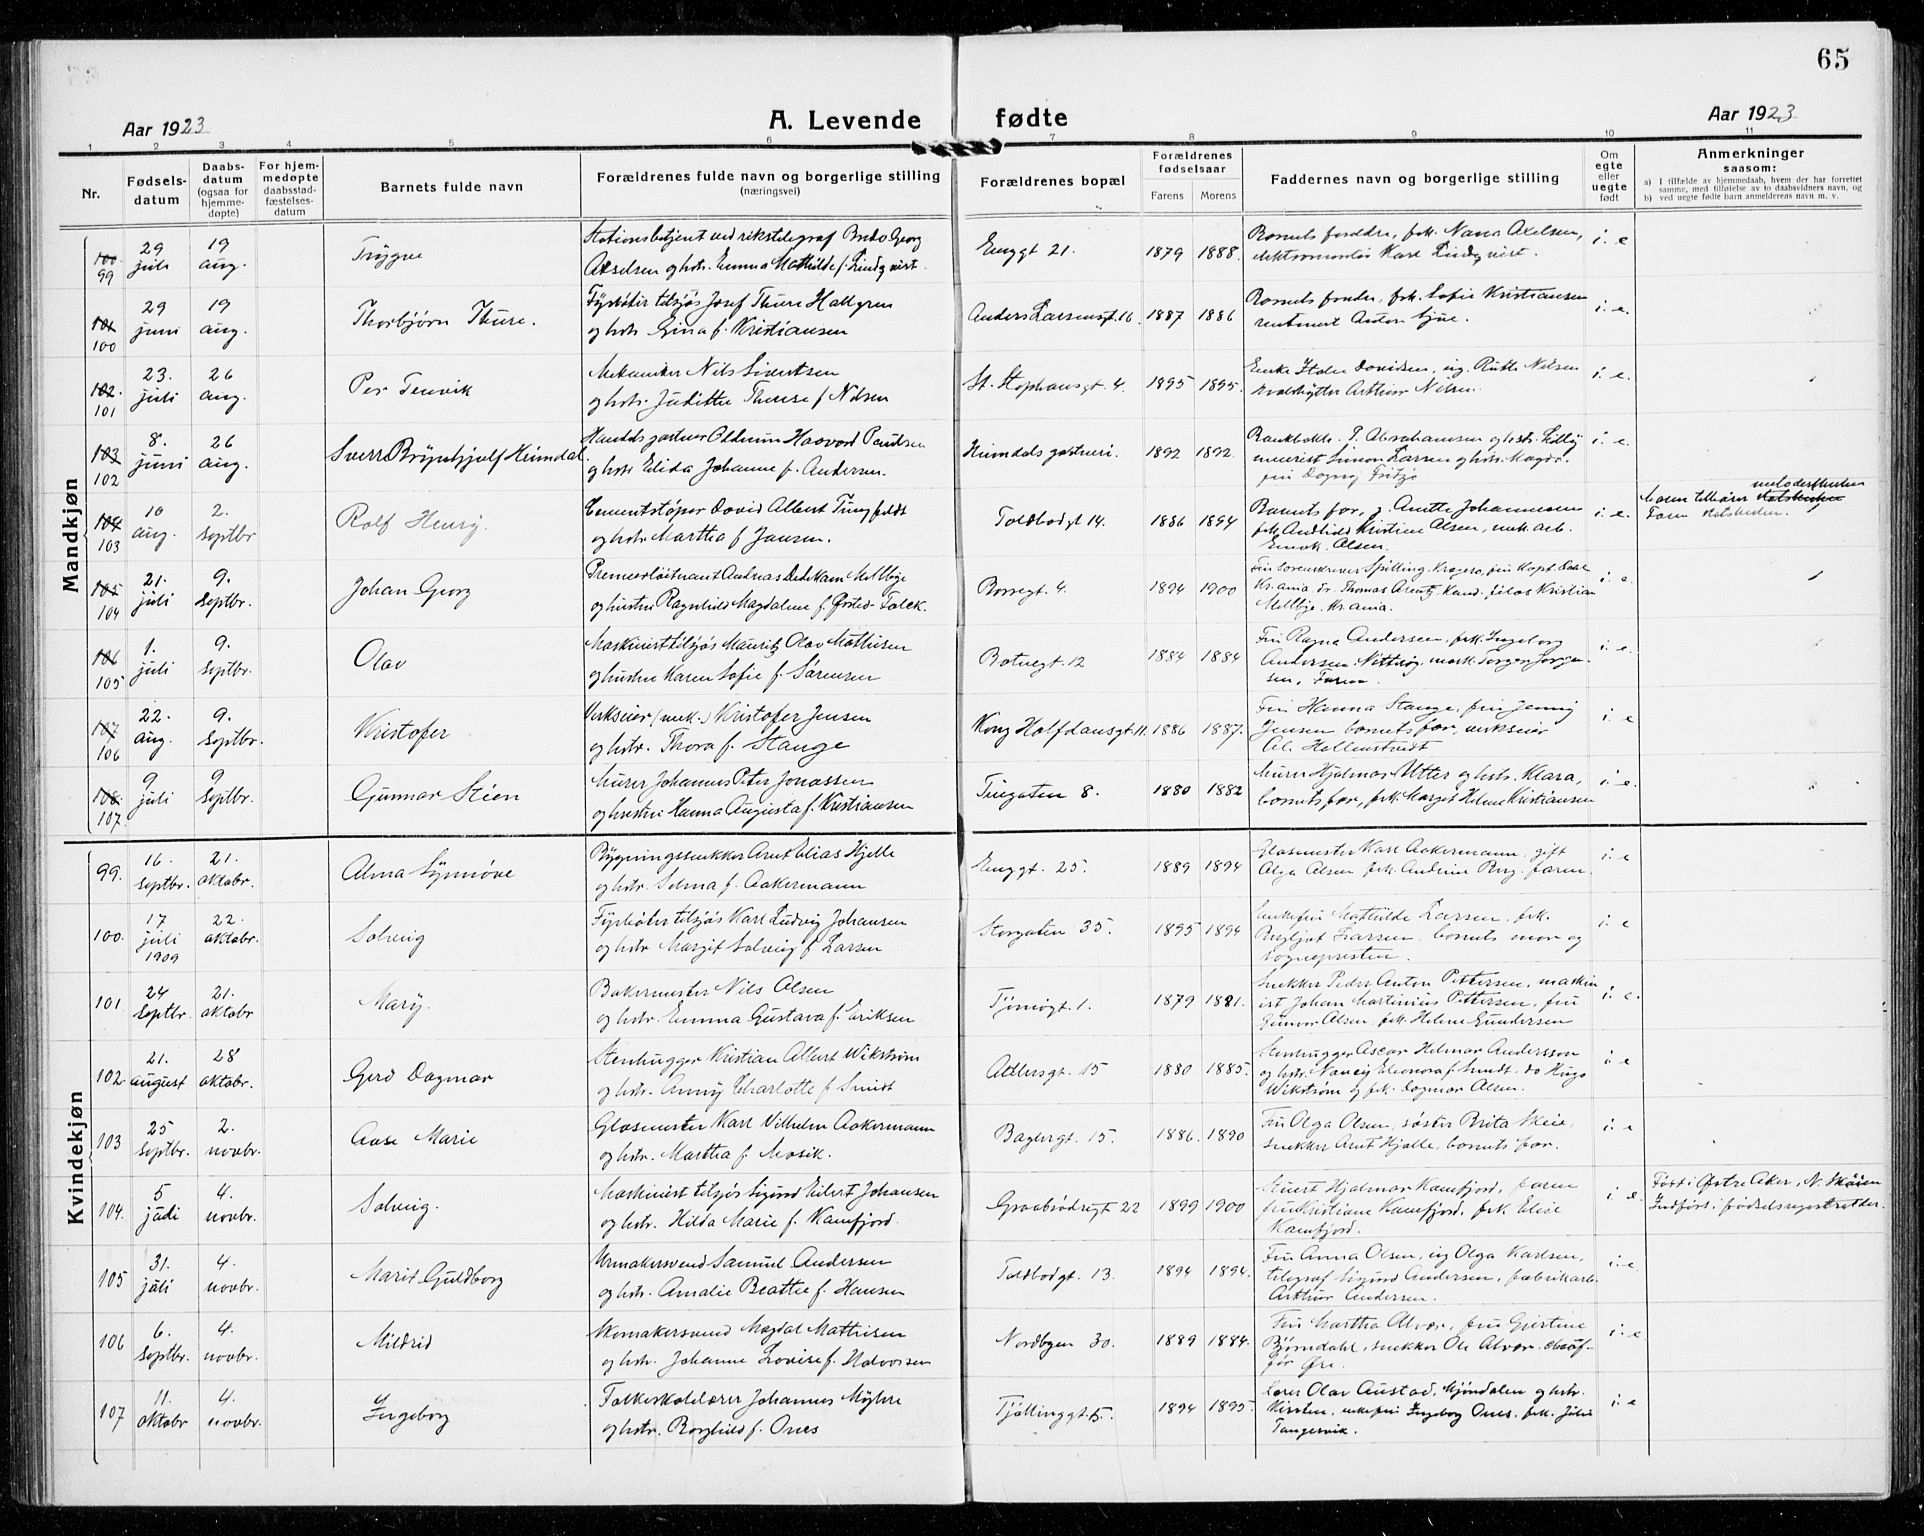 65
Aar 1923
A. Levende fødte
Aar 1923
1 2 3 4 5 6 7 8 9 10 11
Nr.
Fødsels-
datum
Daabs-
datum
(ogsaa for
hjemme-
døpte)
For hjem-
medøpte
daabsstad-
fæstelses-
datum
Barnets fulde navn
Forældrenes fulde navn og borgerlige stilling
(næringsvei)
Forældrenes bopæl
Forældrenes
fødselsaar
Farens Morens
Faddernes navn og borgerlige stilling
Om
egte
eller
uegte
født
Anmerkninger
saasom:
a) I tilfælde av hjemmedaab, hvem der har forrettet
samme, med tilføielse av to daabsvidners navn, og
b) ved uegte fødte barn anmelderens navn m. v.
Mandkjøn
100 99
29 juli
19 aug.
Trygve
Stationsbetjent ved rikstelegraf Georg
Akselsen og hstr. Emma Mathilde f. Lindqvist.
Enggt 21.
1879 1888.
Barnets forældre, frk. Nana Axelsen,
elektromontør Karl Lindqvist.
i. e
101 100
29 juni
19 aug.
Thorbjørn Thure.
Fyrbøter tilsjøs Josef Thure Hallgren
og hstr. Gina f. Kristiansen
Anders Larsensgt. 16.
1887 1886
Barnets foreldre, frk. Sofie Kristiansen
rentenist Anton
i. e.
102 101
23. juli
26 aug.
Per Tenvik
Mekaniker Nils Sivertsen
og hstr. Judithe Therese f. Nilsen
St. Stephansgt. 4.
1895 1895.
Enke Davidsen, ug. Ruth Nilsen
hvalskytter Arthur Nilsen.
i. e.
103 102
8. juni
26 aug.
Sverre Brynhjulf Heimdal
Handelsgartner Haavard Paulsen
og hstr Elida Johanne f. Andersen.
Heimdals gartneri.
1892 1892.
Bankbokh. P. Abrahamsen og hstr.
meierist Simon Larsen og hstr. Magda.
frü Dagny Fritzø
i. e.
104 103
10 aug.
2. septbr
Rolf Henry.
Cementstøper David Albert Tingfeldt
og hstr Martha f Jansen.
Toldbodgt 14.
1886 1894
Barnets far, g. Anette Johannesen
frk Kristine Olsen, mek. arb.
Olsen.
i. e.
Moren tilhører metodistkirken
Faren statskirken.
105 104
21. juli
9. septbr.
Johan Georg
Premierløitnant Andreas Dedekam Mellbye
og hustru Ragnhild Magdalene f. Ørsted-Falck.
Borregt. 4.
1894 1900
Frü sorenskriver Spilling. Kragerø, frü Kapt.
Kr.ania. Dr. Thomas Arentz. Kand. filos Kristian
Mellbye. Kr.ania.
i. e.
106 105
1. juli
9. septbr.
Olav
Maskinist tilsjøs Mauritz Olav Mathisen
og hustru Karen Sofie f. Sørensen
Botnegt. 12
1884 1884
Frü Ragna Andersen, frk. Ingeborg
Andersen. Nøtterøy. mask. Jørgen Jørgen
sen, Faren.
i. e.
107 106
22. aug.
9. septbr.
Kristofer
Verkseier (mek.) Kristofer Jensen
og hstr. Thora f. Stange
Kong Halfdansgt. 11.
1886 1887.
Frü Hanna Stange, frü Jenny
Jensen barnets far, verkseier
i. e
108. 107.
9 juli
9 septbr.
Gunnar Steen
Murer Johannes Peter Jonassen
og hustru Hanna Augusta f. Kristiansen
Tingaten 8.
1880 1882
Murer Hjalmar Utter og hstr. Klara,
barnets far, frk. Margit Helene Kristiansen
i. e
Kvindekjøn
99.
16. septbr.
21. oktobr.
Alma Synnøve
Bygningssnekker Arnt Elias Hjelle
og hstr. Selma f. Aakermann
Enggt. 25.
1889 1894
Glasmester Karl Aakermann. gift
Olga Olsen frk. Andrine Berg. faren.
i. e
100.
17 juli 1909
22. oktobr.
Solveig
Fyrbøter tilsjøs Karl Ludvig Johansen
og hstr. Margit Solveig f Larsen
Storgaten 35.
1895 1894
Enkefrü Mathilde Larsen. frk.
Bergljot Larsen. barnets mor og
sognepresten.
i. e
101
24 septbr.
21. oktobr
Mary.
Bakermester Nils Olsen
og hstr. Emma Gustava f. Eriksen
Tjømøgt. 1.
1879 1881.
Snekker Peder Anton Pettersen, maskin
ist Johan Martinius Pettersen, frü
Gunvor Olsen, frk. Helene Gundersen
i. e.
102
21. august
28 oktobr.
Gerd Dagmar
Stenhugger Kristian Albert Wikstrøm
og hstr. Anny Charlotte f Smidt
Adlersgt. 15
1880 1885.
Stenhugger Oscar Helmar Andersson
og hstr. Nancy Eleonora f. Smidt. do Hugo
Wikstrøm og frk. Dagmar Olsen.
i. e
103
25 septbr.
2. novbr.
Aase Marie
Glasmester Karl Vilhelm Aakermann
og hstr. Martha f. Mosik.
Baglergt. 15.
1886. 1890
Frü Olga Olsen, søster Brita Skeie,
snekker Arnt Hjelle, barnets far.
i. e
104.
5 juli
4. novbr.
Solveig.
Maskinist tilsjøs Sigurd Eilert Johansen
og hstr. Hilda Marie f. Kamfjord.
Graabrødregt 22
1899 1900
Stuert Hjalmar Kamfjord, faren
frü Kristiane Kamfjord. frk Elise
Kamfjord.
i e.
Født i Østre Aker, N. Skøien
Indført i fødselsregistret der.
105
31. juli
4. novbr.
Marit Guldborg
Urmakersvend Samuel Andersen
og hstr. Amalie Beathe f. Hansen
Toldbodgt. 13.
1894 1894.
Frü Anna Olsen, ug Olga Karlsen,
telegraf Sigurd Andersen, fabrikarb.
Arthur Andersen.
i. e.
106
6. septbr.
4. novbr.
Mildrid
Skomakersvend Magdal Mathisen
og hstr. Johanne Lovise f. Halvorsen
Nordbyen 30.
1889 1884.
Frü Martha Alvær, frü Gjertine
Bjørndahl, snekker Ole Alvær. chauf-
før Øre.
i. e
107
11. oktobr
4. novbr.
Ingeborg
Folkeskolelærer Johannes Myhre
og hstr. Borghild f. Ones
Tjøllinggt. 5.
1894 1895.
Lærer Olav Austad, Mjøndalen og hstr.
Kirsten, enkefrü Ingeborg Ones. frk. Julie
Tangesvik.
i. e